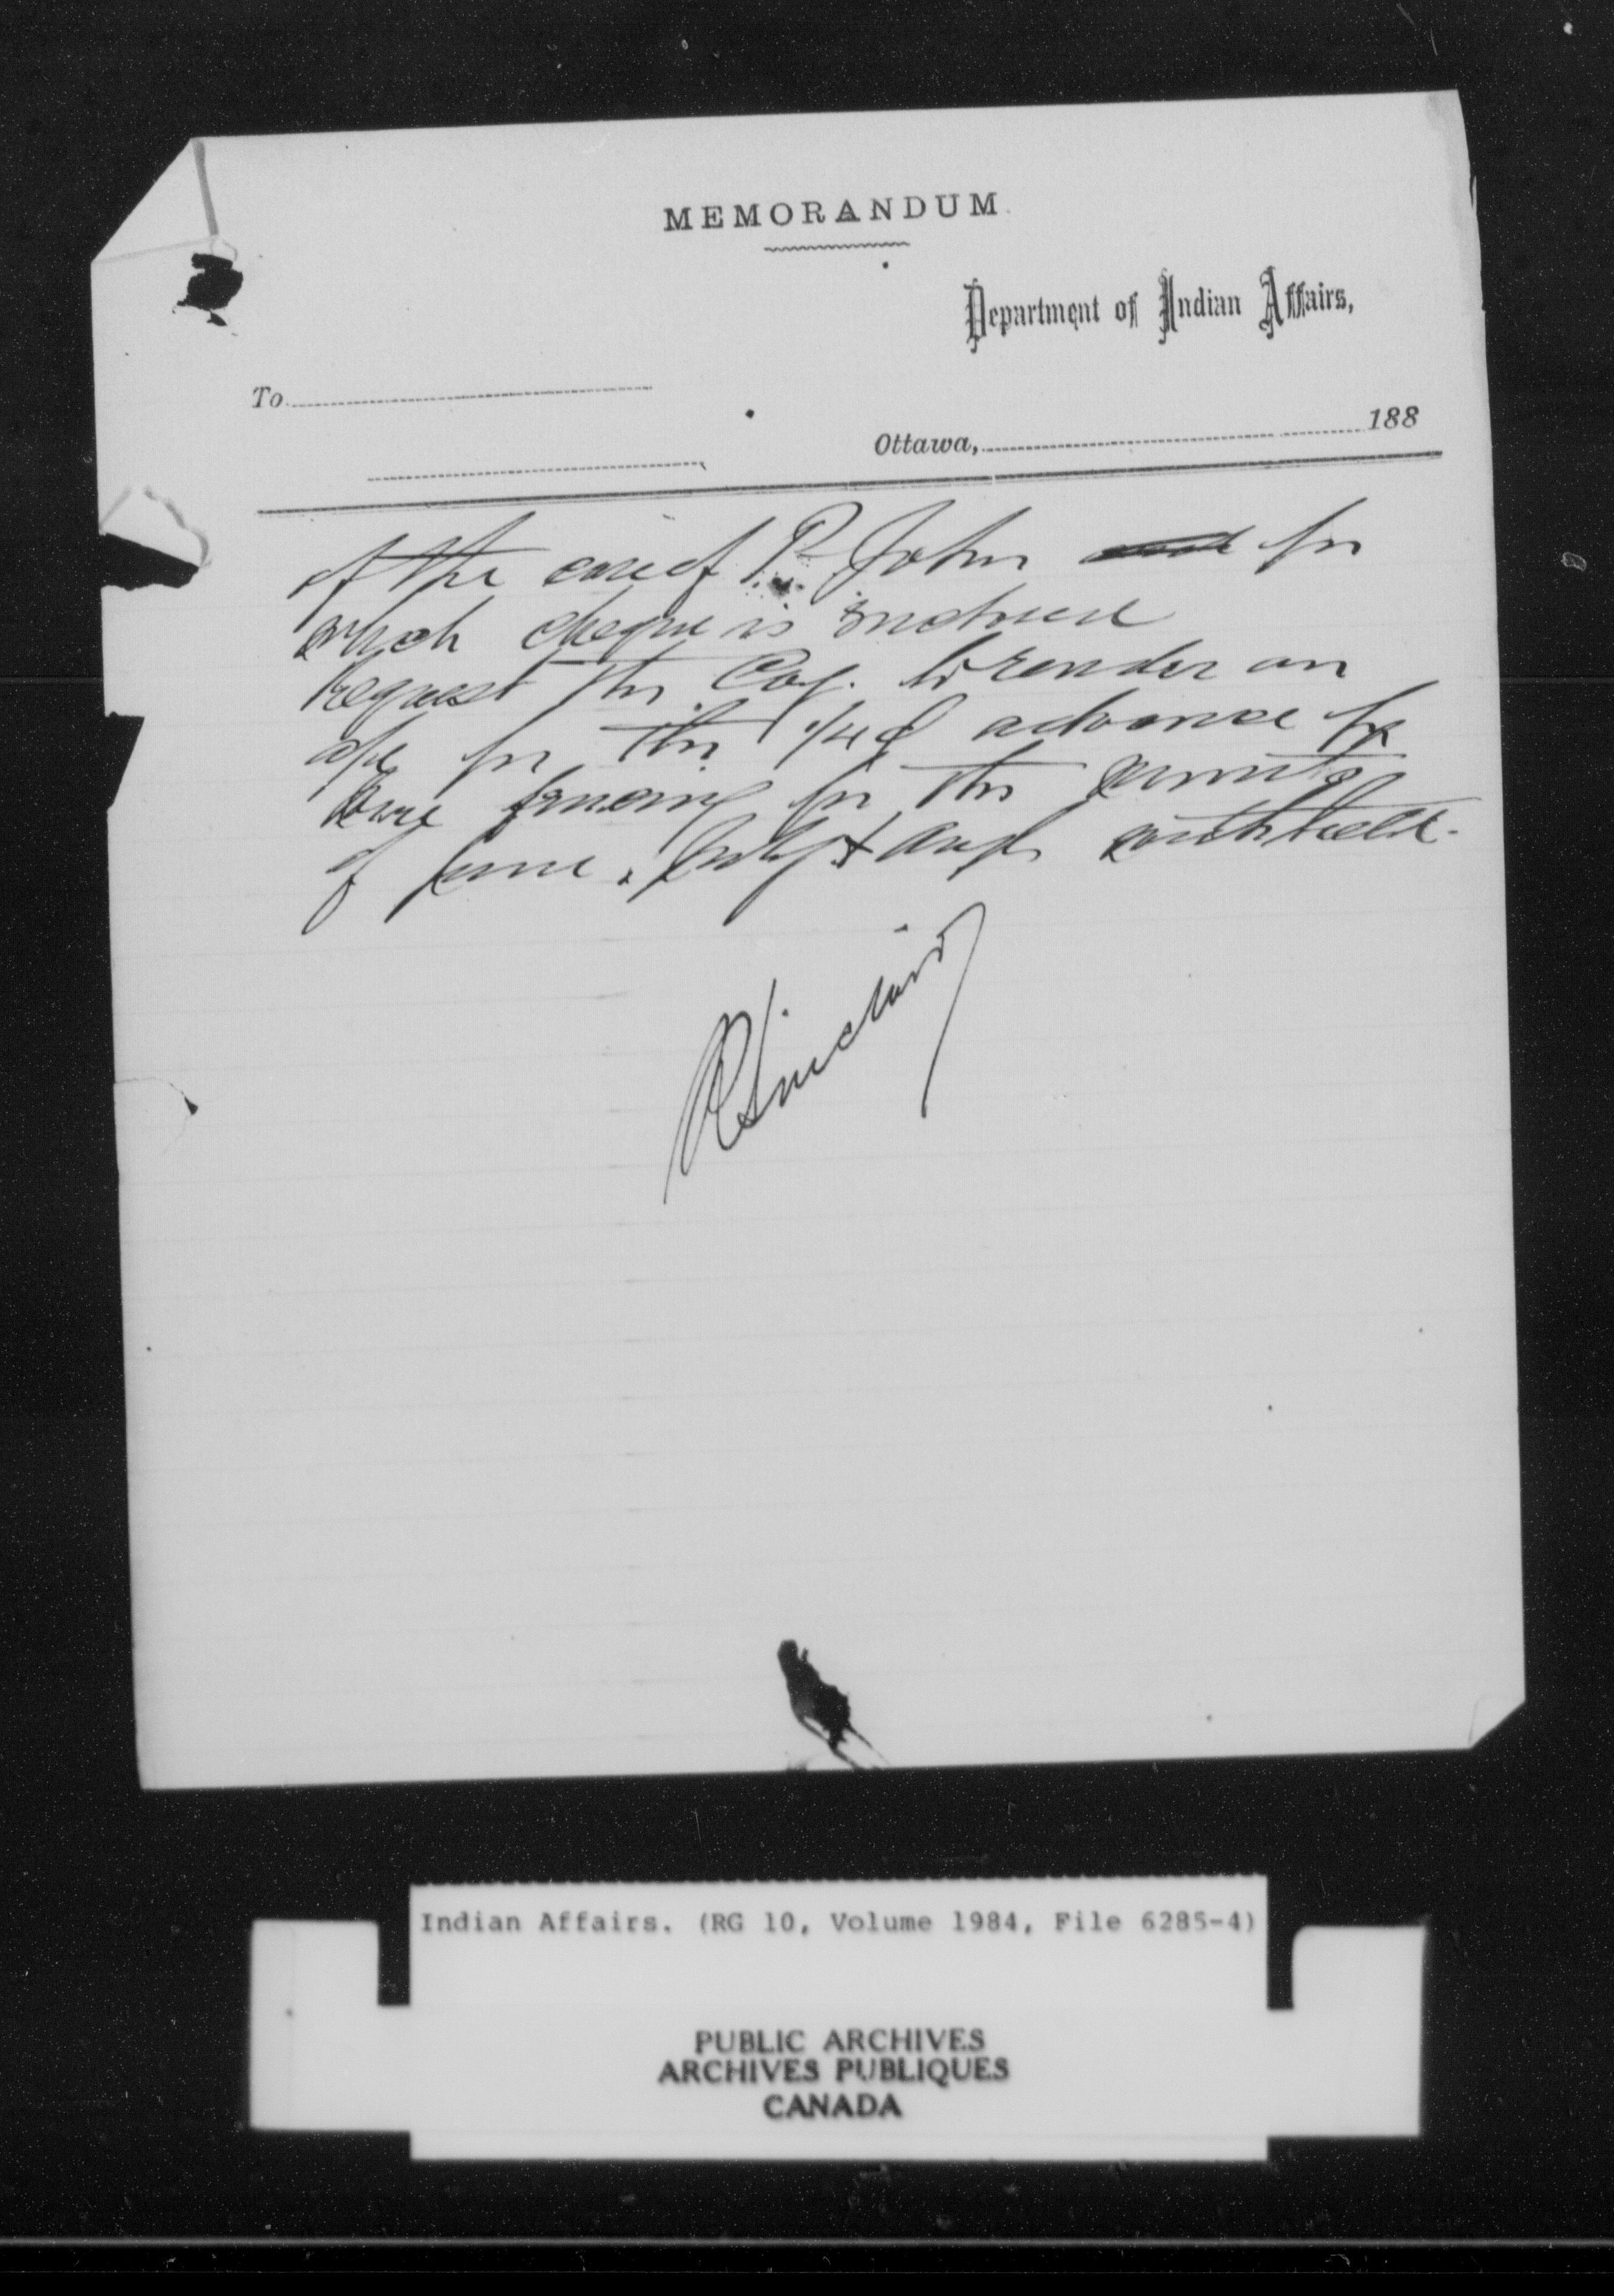 MEMORANDUM
Department of Indian Affairs,
To
Ottawa, 188
of the case of P. John for
which cheque is enclosed
request the to render an
a/c for the advance
for the
of June, July & Aug withheld.
RSinclair
Indian Affairs. (RG 10, Volume 1984, File 6285-4)
PUBLIC ARCHIVES
ARCHIVES PUBLIQUES
CANADA